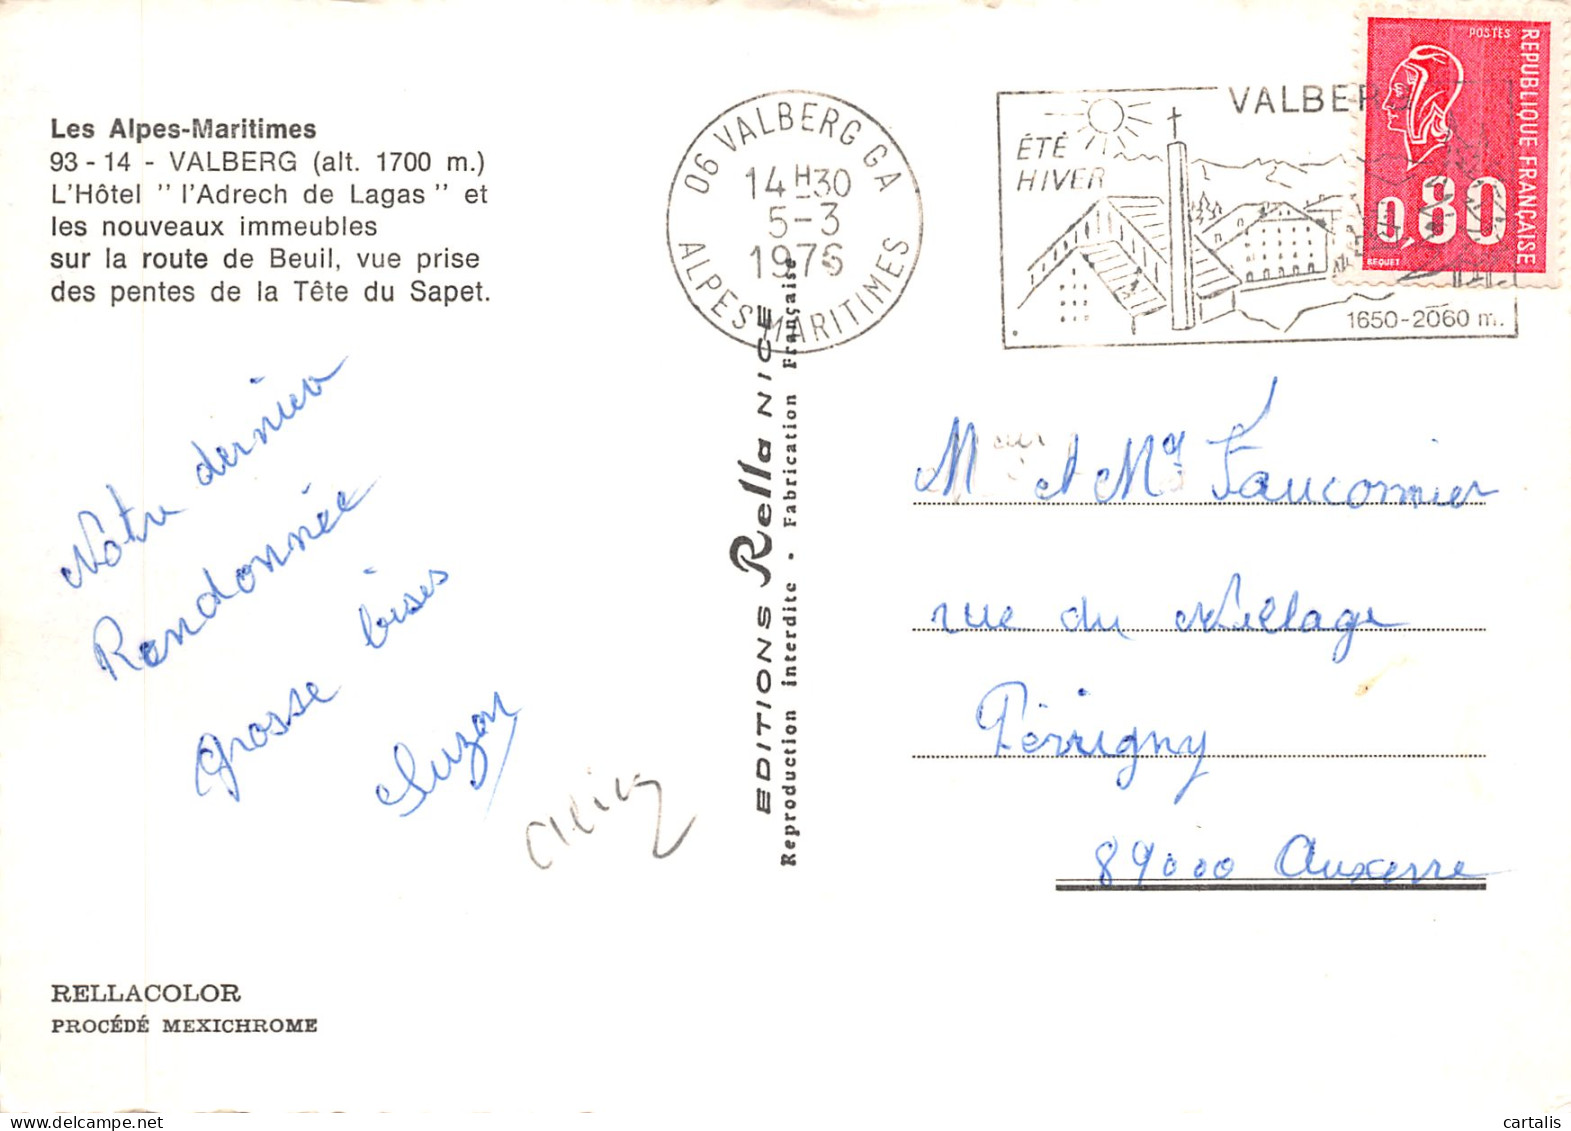 Les Alpes-Maritimes
93 - 14 - VALBERG (alt. 1700 m.)
L'Hôtel " l'Adrech de Lagas " et
les nouveaux immeubles
sur la route de Beuil, vue prise
des pentes de la Tête du Sapet.
Notre dernier
Randonnée
grosse bises
Suzon
RELLACOLOR
PROCÉDÉ MEXICHROME
EDITIONS Rella NICE
Reproduction interdite • Fabrication Française
06 VALBERG GA
14H30
5-3
1976
ALPES MARITIMES
VALBERG
ÉTÉ
HIVER
1650-2060 m.
POSTES
REPUBLIQUE FRANÇAISE
0,80
BEQUET
M et Me Fauconnier
rue du Village
Périgny
89000 Auxerre
delcampe.net
cartalis